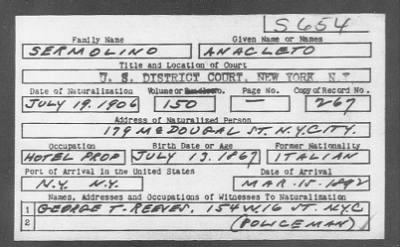 S654
Family Name Given Name or Names
SERMOLINO ANACLETO
Title and Location of Court
U. S. DISTRICT COURT, NEW YORK N.Y.
Date of Naturalization Volume or Page No. Copy of Record No.
JULY 19. 1906 150 — 267
Address of Naturalized Person
179 McDOUGAL ST. N.Y. CITY.
Occupation Birth Date or Age Former Nationality
HOTEL PROP JULY 13. 1867 ITALIAN
Port of Arrival in the United States Date of Arrival
N.Y. N.Y. MAR. 15. 1892
Names, Addresses and Occupations of Witnesses To Naturalization
1 GEORGE T. REEVES. 154 W. 16 ST. N.Y.C
2 (POLICEMAN)